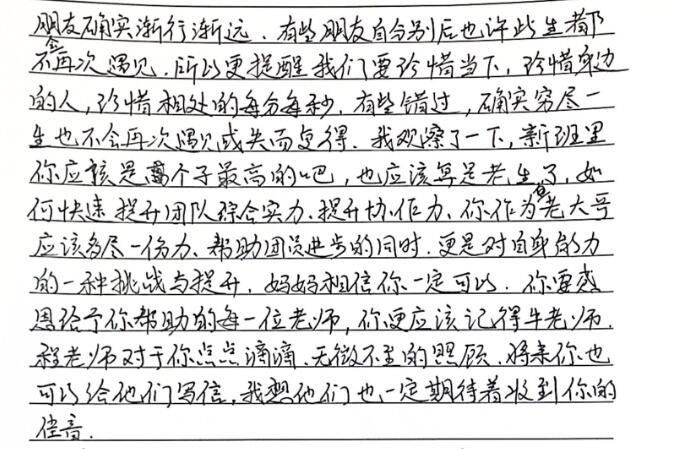 朋友确实渐行渐远．有些朋友自分别后也许此生都
不会再次遇见．所以更提醒我们要珍惜当下，珍惜身边
的人，珍惜相处的每分每秒．有些错过，确实穷尽一
生也不会再次遇见或失而复得．我观察了一下，新班里
你应该是个子最高的吧，也应该算是老生了，如
何快速提升团队综合实力、提升协作力、你作为老大哥
应该多尽一份力、帮助团员进步的同时．更是对自身能力
的一种挑战与提升．妈妈相信你一定可以．你要感
恩给予你帮助的每一位老师，你更应该记得牛老师．
程老师对于你点点滴滴．无微不至的照顾．将来你也
可以给他们写信，我想他们也一定期待着收到你的
佳音．